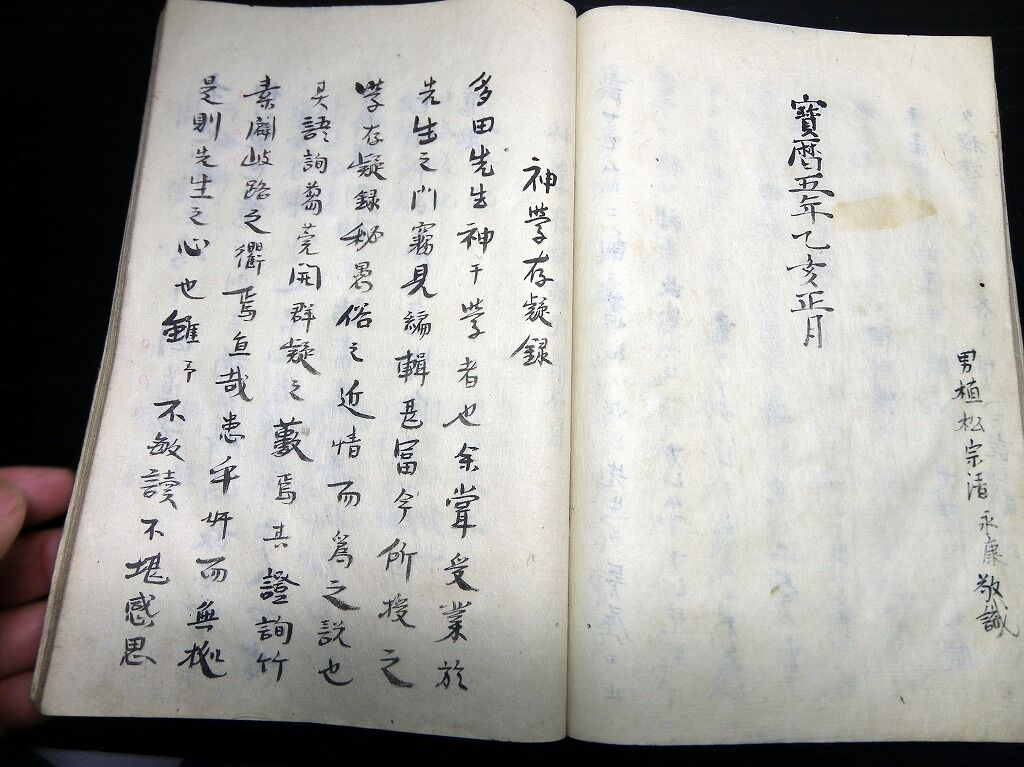 寶暦五年乙亥正月
男植松宗清永康敬識
神學存疑錄
多田先生神于學者也余甞受業於
先生之門竊見編輯甚冨今所授之
學存疑録秘愚俗之近情而為之説也
其諺詢蒭蕘開群疑之藪焉其證詢竹
素闢岐路之衢焉宜哉患乎奸而無
是則先生之心也雖予不敏讀不堪感思